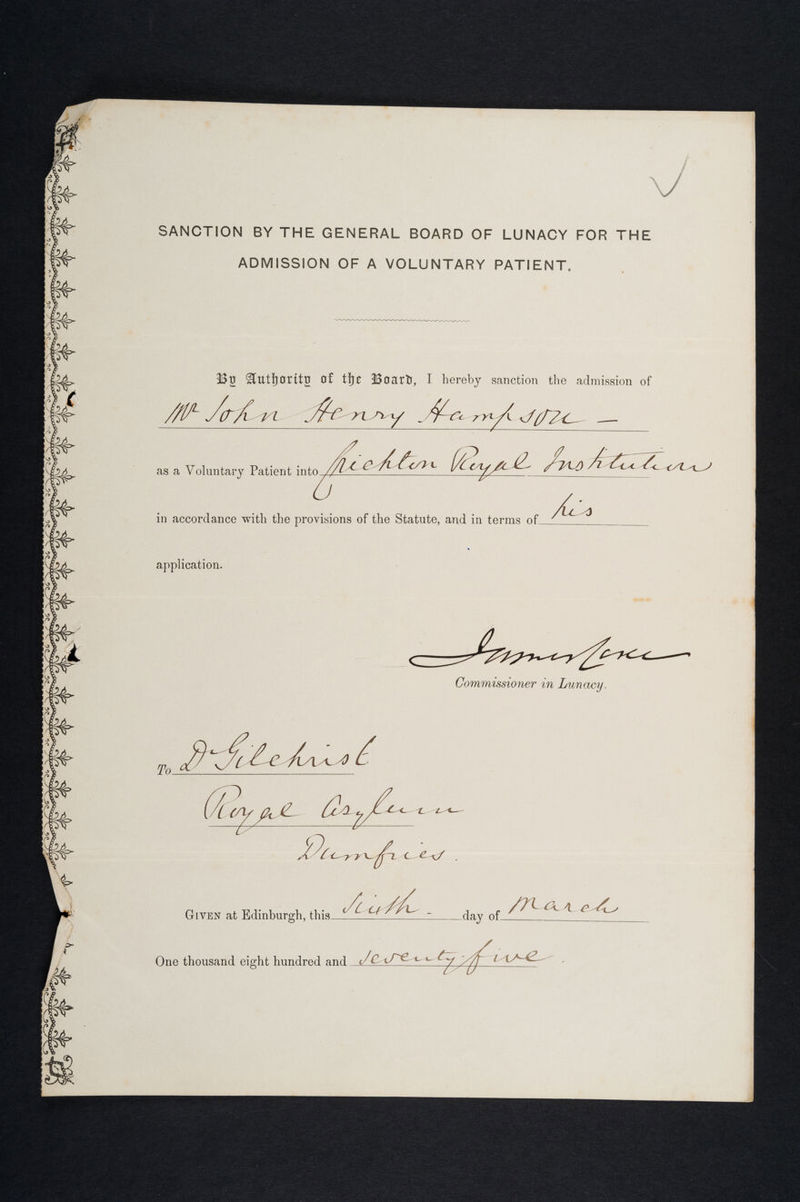 SANCTION BY THE GENERAL BOARD OF LUNACY FOR THE
ADMISSION OF A VOLUNTARY PATIENT.
By Authority of the Board, I hereby sanction the admission of
Mr John Henry Hampson —
as a Voluntary Patient into Crichton Royal Institution
in accordance with the provisions of the Statute, and in terms of his
application.
James Coxe
Commissioner in Lunacy.
To Dr Gilchrist
Royal Asylum
Dumfries.
GIVEN at Edinburgh, this day of March
One thousand eight hundred and seventy-five.